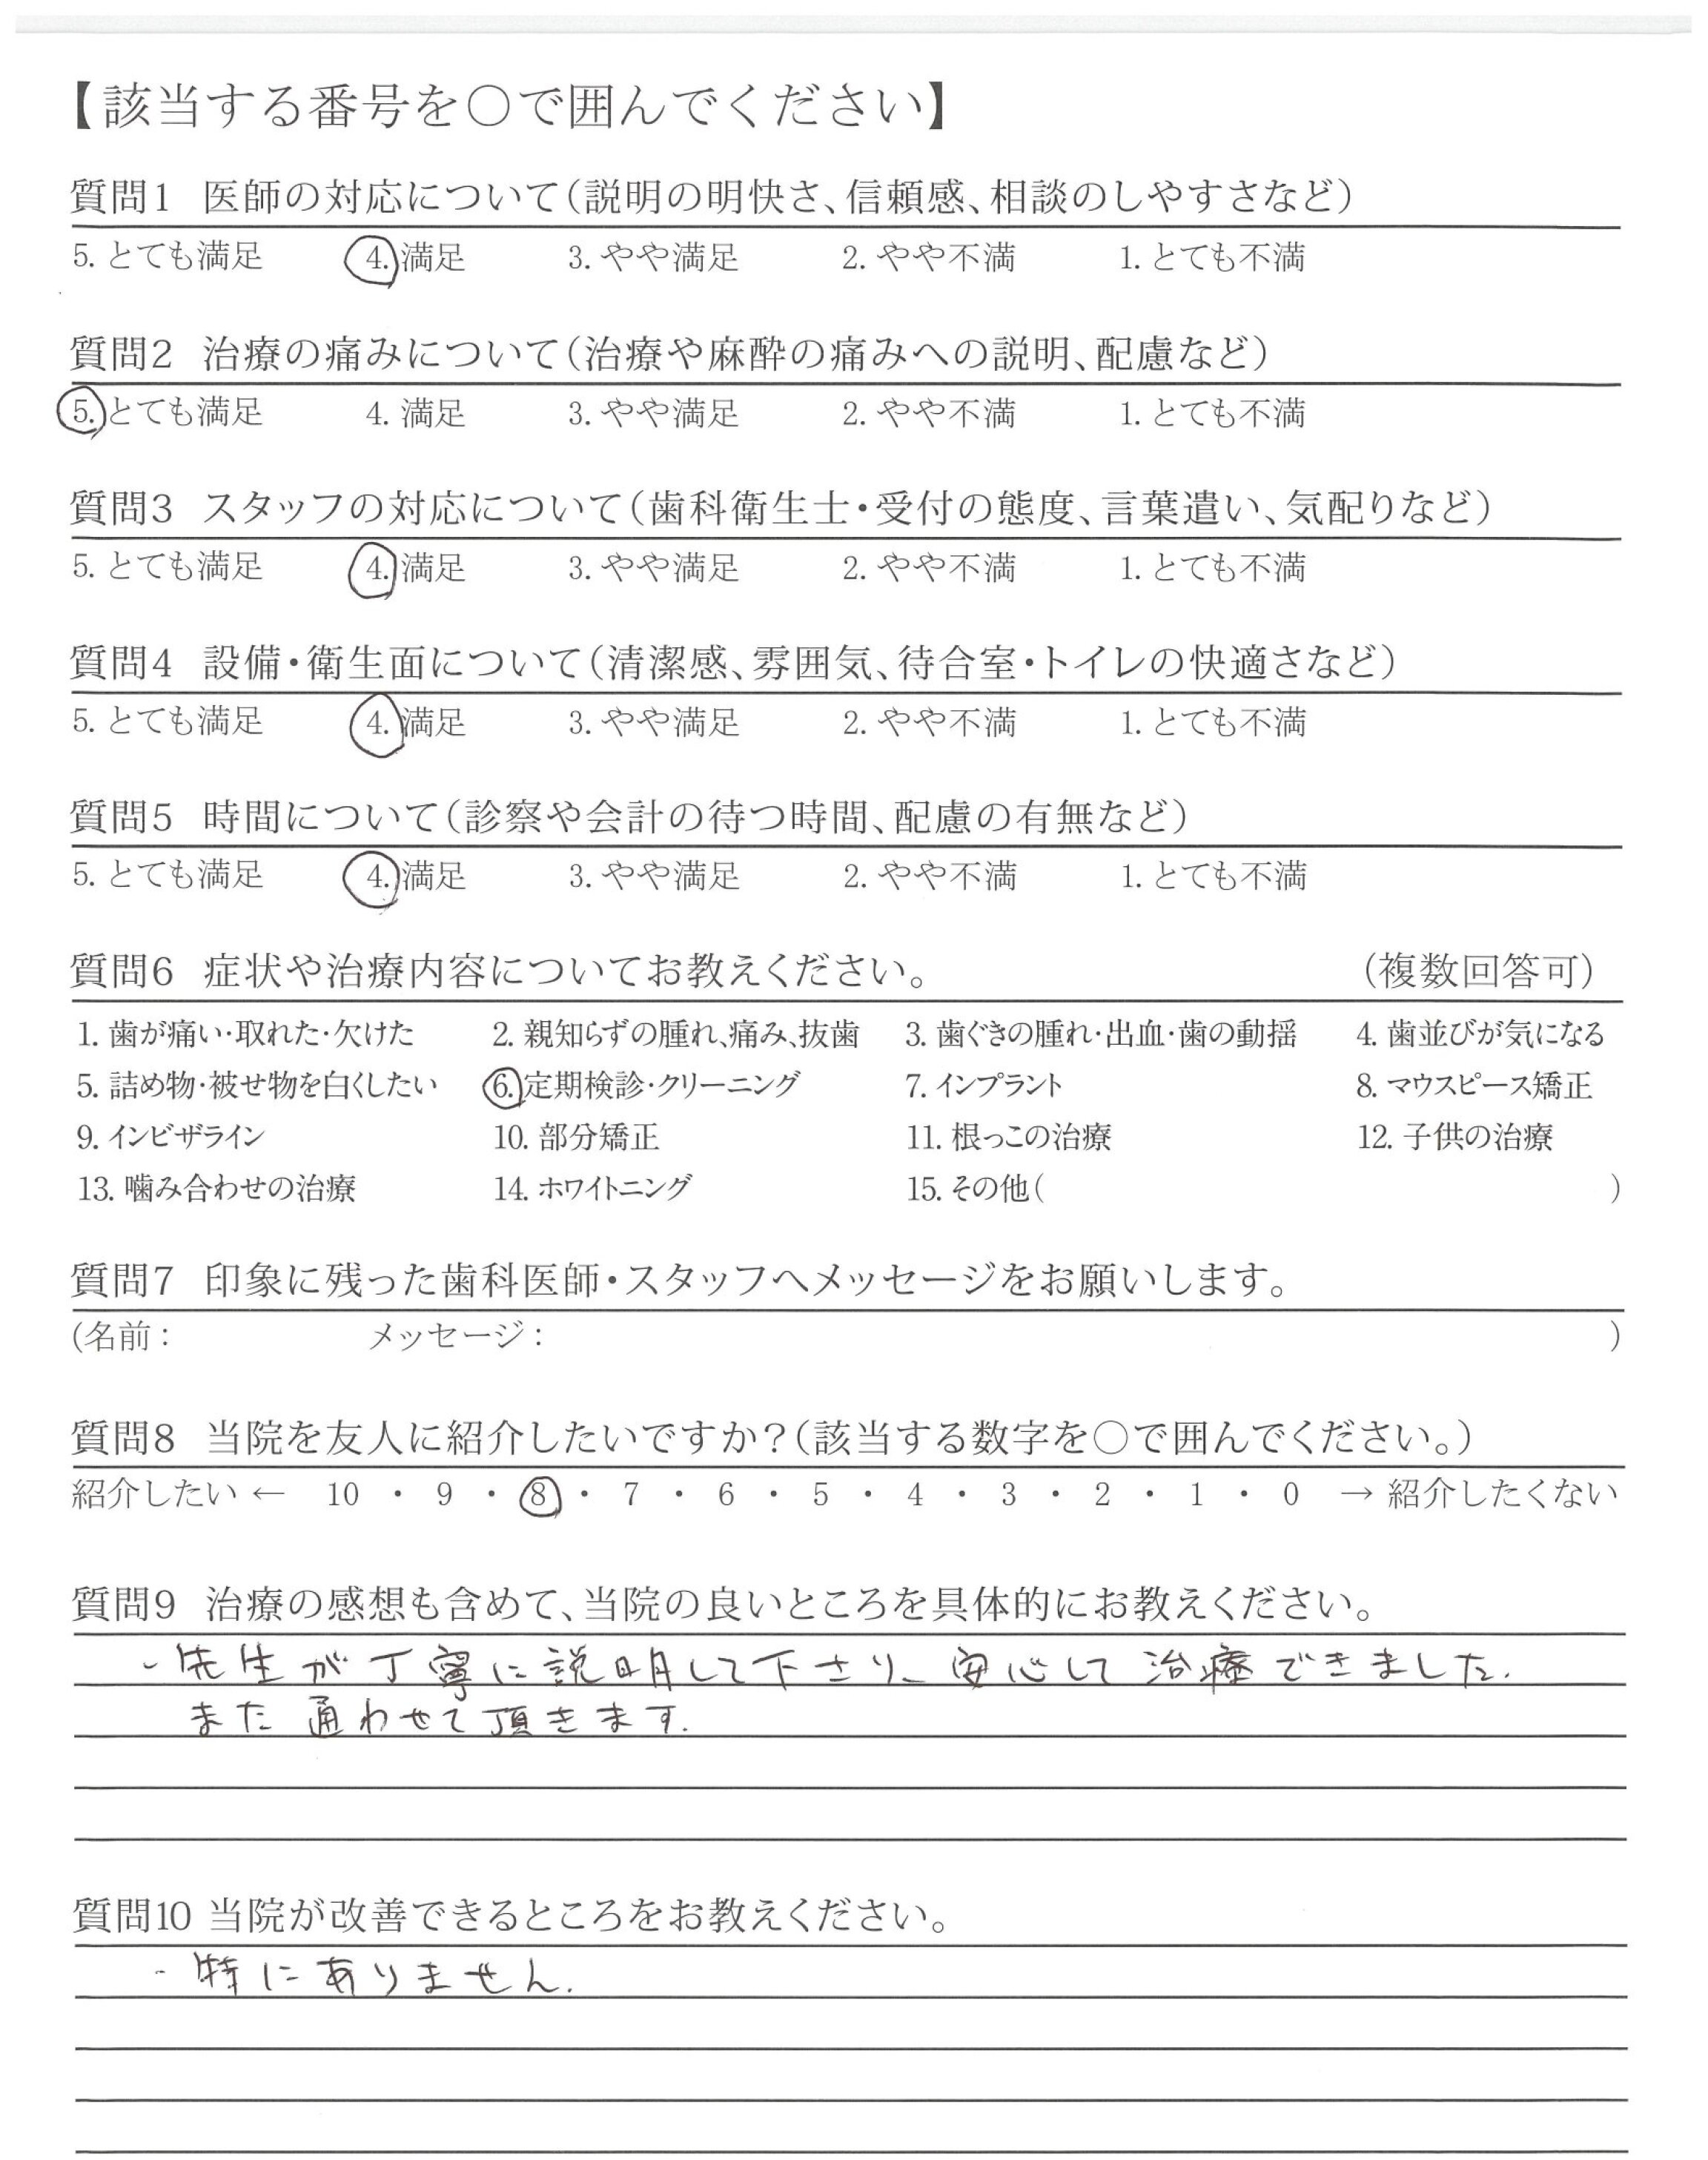 【該当する番号を〇で囲んでください】
質問1 医師の対応について(説明の明快さ、信頼感、相談のしやすさなど)
5. とても満足 4. 満足 3. やや満足 2. やや不満 1. とても不満
質問2 治療の痛みについて(治療や麻酔の痛みへの説明、配慮など)
5. とても満足 4. 満足 3. やや満足 2. やや不満 1. とても不満
質問3 スタッフの対応について(歯科衛生士・受付の態度、言葉遣い、気配りなど)
5. とても満足 4. 満足 3. やや満足 2. やや不満 1. とても不満
質問4 設備・衛生面について(清潔感、雰囲気、待合室・トイレの快適さなど)
5. とても満足 4. 満足 3. やや満足 2. やや不満 1. とても不満
質問5 時間について(診察や会計の待つ時間、配慮の有無など)
5. とても満足 4. 満足 3. やや満足 2. やや不満 1. とても不満
質問6 症状や治療内容についてお教えください。 (複数回答可)
1. 歯が痛い・取れた・欠けた 2. 親知らずの腫れ、痛み、抜歯 3. 歯ぐきの腫れ・出血・歯の動揺 4. 歯並びが気になる
5. 詰め物・被せ物を白くしたい 6. 定期検診・クリーニング 7. インプラント 8. マウスピース矯正
9. インビザライン 10. 部分矯正 11. 根っこの治療 12. 子供の治療
13. 噛み合わせの治療 14. ホワイトニング 15. その他( )
質問7 印象に残った歯科医師・スタッフへメッセージをお願いします。
(名前: メッセージ: )
質問8 当院を友人に紹介したいですか?(該当する数字を〇で囲んでください。)
紹介したい ← 10 ・ 9 ・ 8 ・ 7 ・ 6 ・ 5 ・ 4 ・ 3 ・ 2 ・ 1 ・ 0 → 紹介したくない
質問9 治療の感想も含めて、当院の良いところを具体的にお教えください。
・先生が丁寧に説明して下さり、安心して治療できました.
また通わせて頂きます.
質問10 当院が改善できるところをお教えください。
・特にありません.